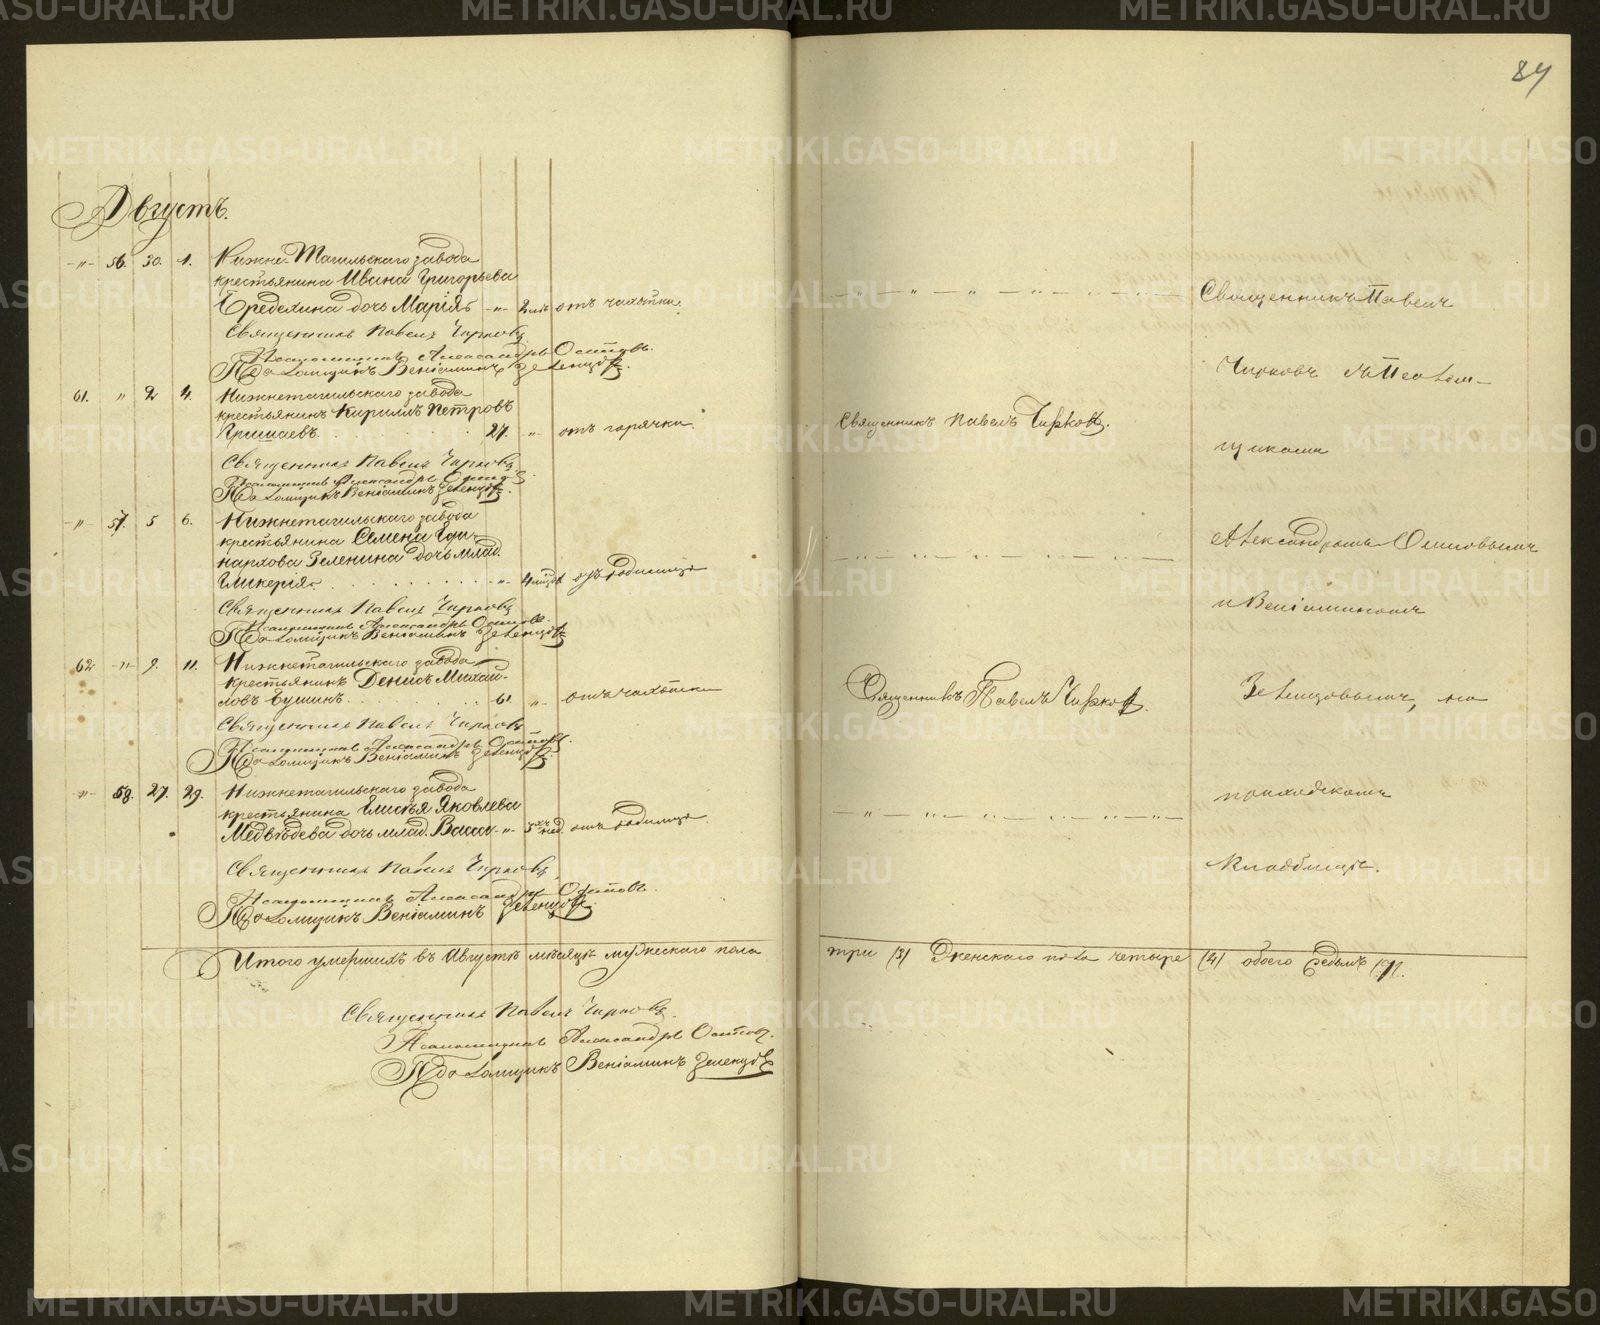 84
Августъ.
-"- 56. 30. 1. Нижне-Тагильскаго завода
крестьянина Ивана Григорьева
Середкина дочь Марія -"- 2 отъ чахотки.
Священникъ Павелъ Чирковъ
Псаломщикъ Александръ Осиповъ.
Псаломщикъ Веніаминъ Зеленцовъ.
61. " 2 4. Нижнетагильскаго завода
крестьянинъ Кириллъ Петровъ
27. -"- отъ горячки.
Священникъ Павелъ Чирковъ
Псаломщикъ Александръ Осиповъ
Псаломщикъ Веніаминъ Зеленцовъ.
-"- 57. 5 6. Нижнетагильскаго завода
крестьянина Семена Гри-
Зеленина дочь млад.
Гликерія. -"- 4 отъ родимца
Священникъ Павелъ Чирковъ
Псаломщикъ Александръ Осиповъ.
Псаломщикъ Веніаминъ Зеленцовъ
62 -"- 9. 11. Нижнетагильскаго завода
крестьянинъ Денисъ Михай-
ловъ 61. " отъ чахотки
Священникъ Павелъ Чирковъ
Псаломщикъ Александръ Осиповъ.
Псаломщикъ Веніаминъ Зеленцовъ.
-"- 58. 27. 29. Нижнетагильскаго завода
крестьянина Елисѣя Яковлева
Медвѣдева дочь млад. Васса -"- 3хъ нед. отъ родимца.
Священникъ Павелъ Чирковъ
Псаломщикъ Александръ Осиповъ.
Псаломщикъ Веніаминъ Зеленцовъ.
Итого умершихъ въ Августѣ мѣсяцѣ мужескаго пола
Священникъ Павелъ Чирковъ.
Псаломщикъ Александръ Осиповъ.
Псаломщикъ Веніаминъ Зеленцовъ
Священникъ Павелъ Чирковъ.
Священникъ Павелъ Чирковъ.
Священникъ Павелъ
Чирковъ съ Псалом-
щиками
Александромъ Осиповымъ
и Веніаминомъ
Зеленцовымъ, на
приходскомъ
кладбищѣ.
три (3) Женскаго пола четыре (4) обоего Седьмъ (7).
METRIKI.GASO-URAL.RU